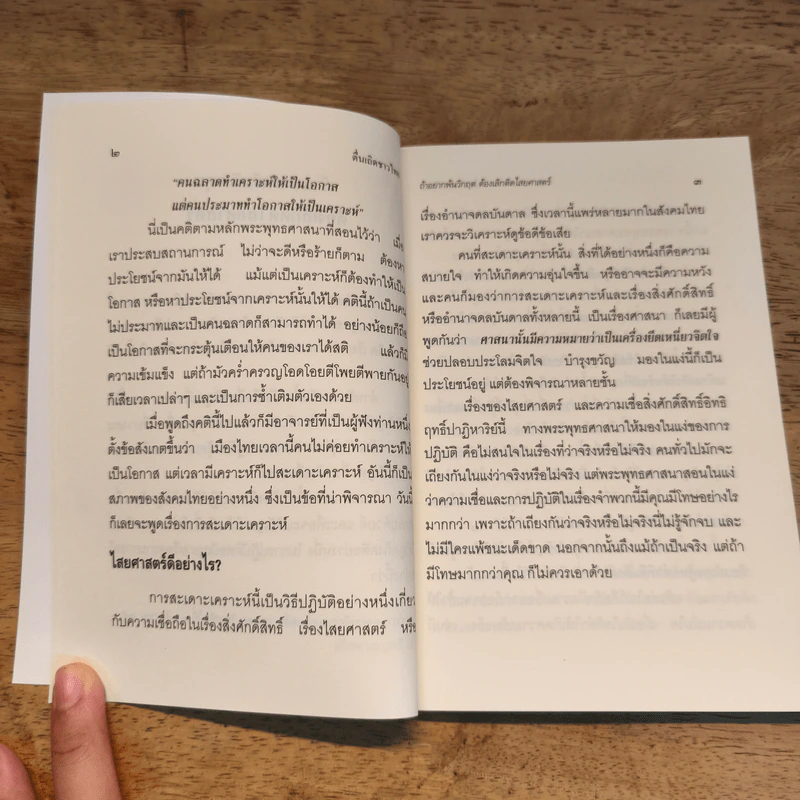 ๒
ตื่นเถิดชาวไทย
"คนฉลาดทำเคราะห์ให้เป็นโอกาส
แต่คนประมาททำโอกาสให้เป็นเคราะห์"
นี่เป็นคติตามหลักพระพุทธศาสนาที่สอนไว้ว่า เมื่อ
เราประสบสถานการณ์ ไม่ว่าจะดีหรือร้ายก็ตาม ต้องหา
ประโยชน์จากมันให้ได้ แม้แต่เป็นเคราะห์ก็ต้องทำให้เป็น
โอกาส หรือหาประโยชน์จากเคราะห์นั้นให้ได้ คตินี้ถ้าเป็นคน
ไม่ประมาทและเป็นคนฉลาดก็สามารถทำได้ อย่างน้อยก็ถือ
เป็นโอกาสที่จะกระตุ้นเตือนให้คนของเราได้สติ แล้วก็มี
ความเข้มแข็ง แต่ถ้ามัวคร่ำครวญโอดโอยตีโพยตีพายกันอยู่
ก็เสียเวลาเปล่าๆ และเป็นการซ้ำเติมตัวเองด้วย
เมื่อพูดถึงคตินี้ไปแล้วก็มีอาจารย์ที่เป็นผู้ฟังท่านหนึ่ง
ตั้งข้อสังเกตขึ้นว่า เมืองไทยเวลานี้คนไม่ค่อยทำเคราะห์ให้
เป็นโอกาส แต่เวลามีเคราะห์ก็ไปสะเดาะเคราะห์ อันนี้ก็เป็น
สภาพของสังคมไทยอย่างหนึ่ง ซึ่งเป็นข้อที่น่าพิจารณา วันนี้
ก็เลยจะพูดเรื่องการสะเดาะเคราะห์
ไสยศาสตร์ดีอย่างไร?
การสะเดาะเคราะห์นี้เป็นวิธีปฏิบัติอย่างหนึ่งเกี่ยว
กับความเชื่อถือในเรื่องสิ่งศักดิ์สิทธิ์ เรื่องไสยศาสตร์ หรือ
ถ้าอยากพ้นวิกฤต ต้องเลิกติดไสยศาสตร์
๓
เรื่องอำนาจดลบันดาล ซึ่งเวลานี้แพร่หลายมากในสังคมไทย
เราควรจะวิเคราะห์ดูข้อดีข้อเสีย
คนที่สะเดาะเคราะห์นั้น สิ่งที่ได้อย่างหนึ่งก็คือความ
สบายใจ ทำให้เกิดความอุ่นใจขึ้น หรืออาจจะมีความหวัง
และคนก็มองว่าการสะเดาะเคราะห์และเรื่องสิ่งศักดิ์สิทธิ์
หรืออำนาจดลบันดาลทั้งหลายนี้ เป็นเรื่องศาสนา ก็เลยมีผู้
พูดกันว่า ศาสนานั้นมีความหมายว่าเป็นเครื่องยึดเหนี่ยวจิตใจ
ช่วยปลอบประโลมจิตใจ บำรุงขวัญ มองในแง่นี้ก็เป็น
ประโยชน์อยู่ แต่ต้องพิจารณาหลายชั้น
เรื่องของไสยศาสตร์ และความเชื่อสิ่งศักดิ์สิทธิ์อิทธิ
ฤทธิ์ปาฏิหาริย์นี้ ทางพระพุทธศาสนาให้มองในแง่ของการ
ปฏิบัติ คือไม่สนใจในเรื่องที่ว่าจริงหรือไม่จริง คนทั่วไปมักจะ
เถียงกันในแง่ว่าจริงหรือไม่จริง แต่พระพุทธศาสนาสอนในแง่
ว่าความเชื่อและการปฏิบัติในเรื่องจำพวกนี้มีคุณมีโทษอย่างไร
มากกว่า เพราะถ้าเถียงกันว่าจริงหรือไม่จริงนี่ไม่รู้จักจบ และ
ไม่มีใครแพ้ชนะเด็ดขาด นอกจากนั้นถึงแม้ถ้าเป็นจริง แต่ถ้า
มีโทษมากกว่าคุณ ก็ไม่ควรเอาด้วย